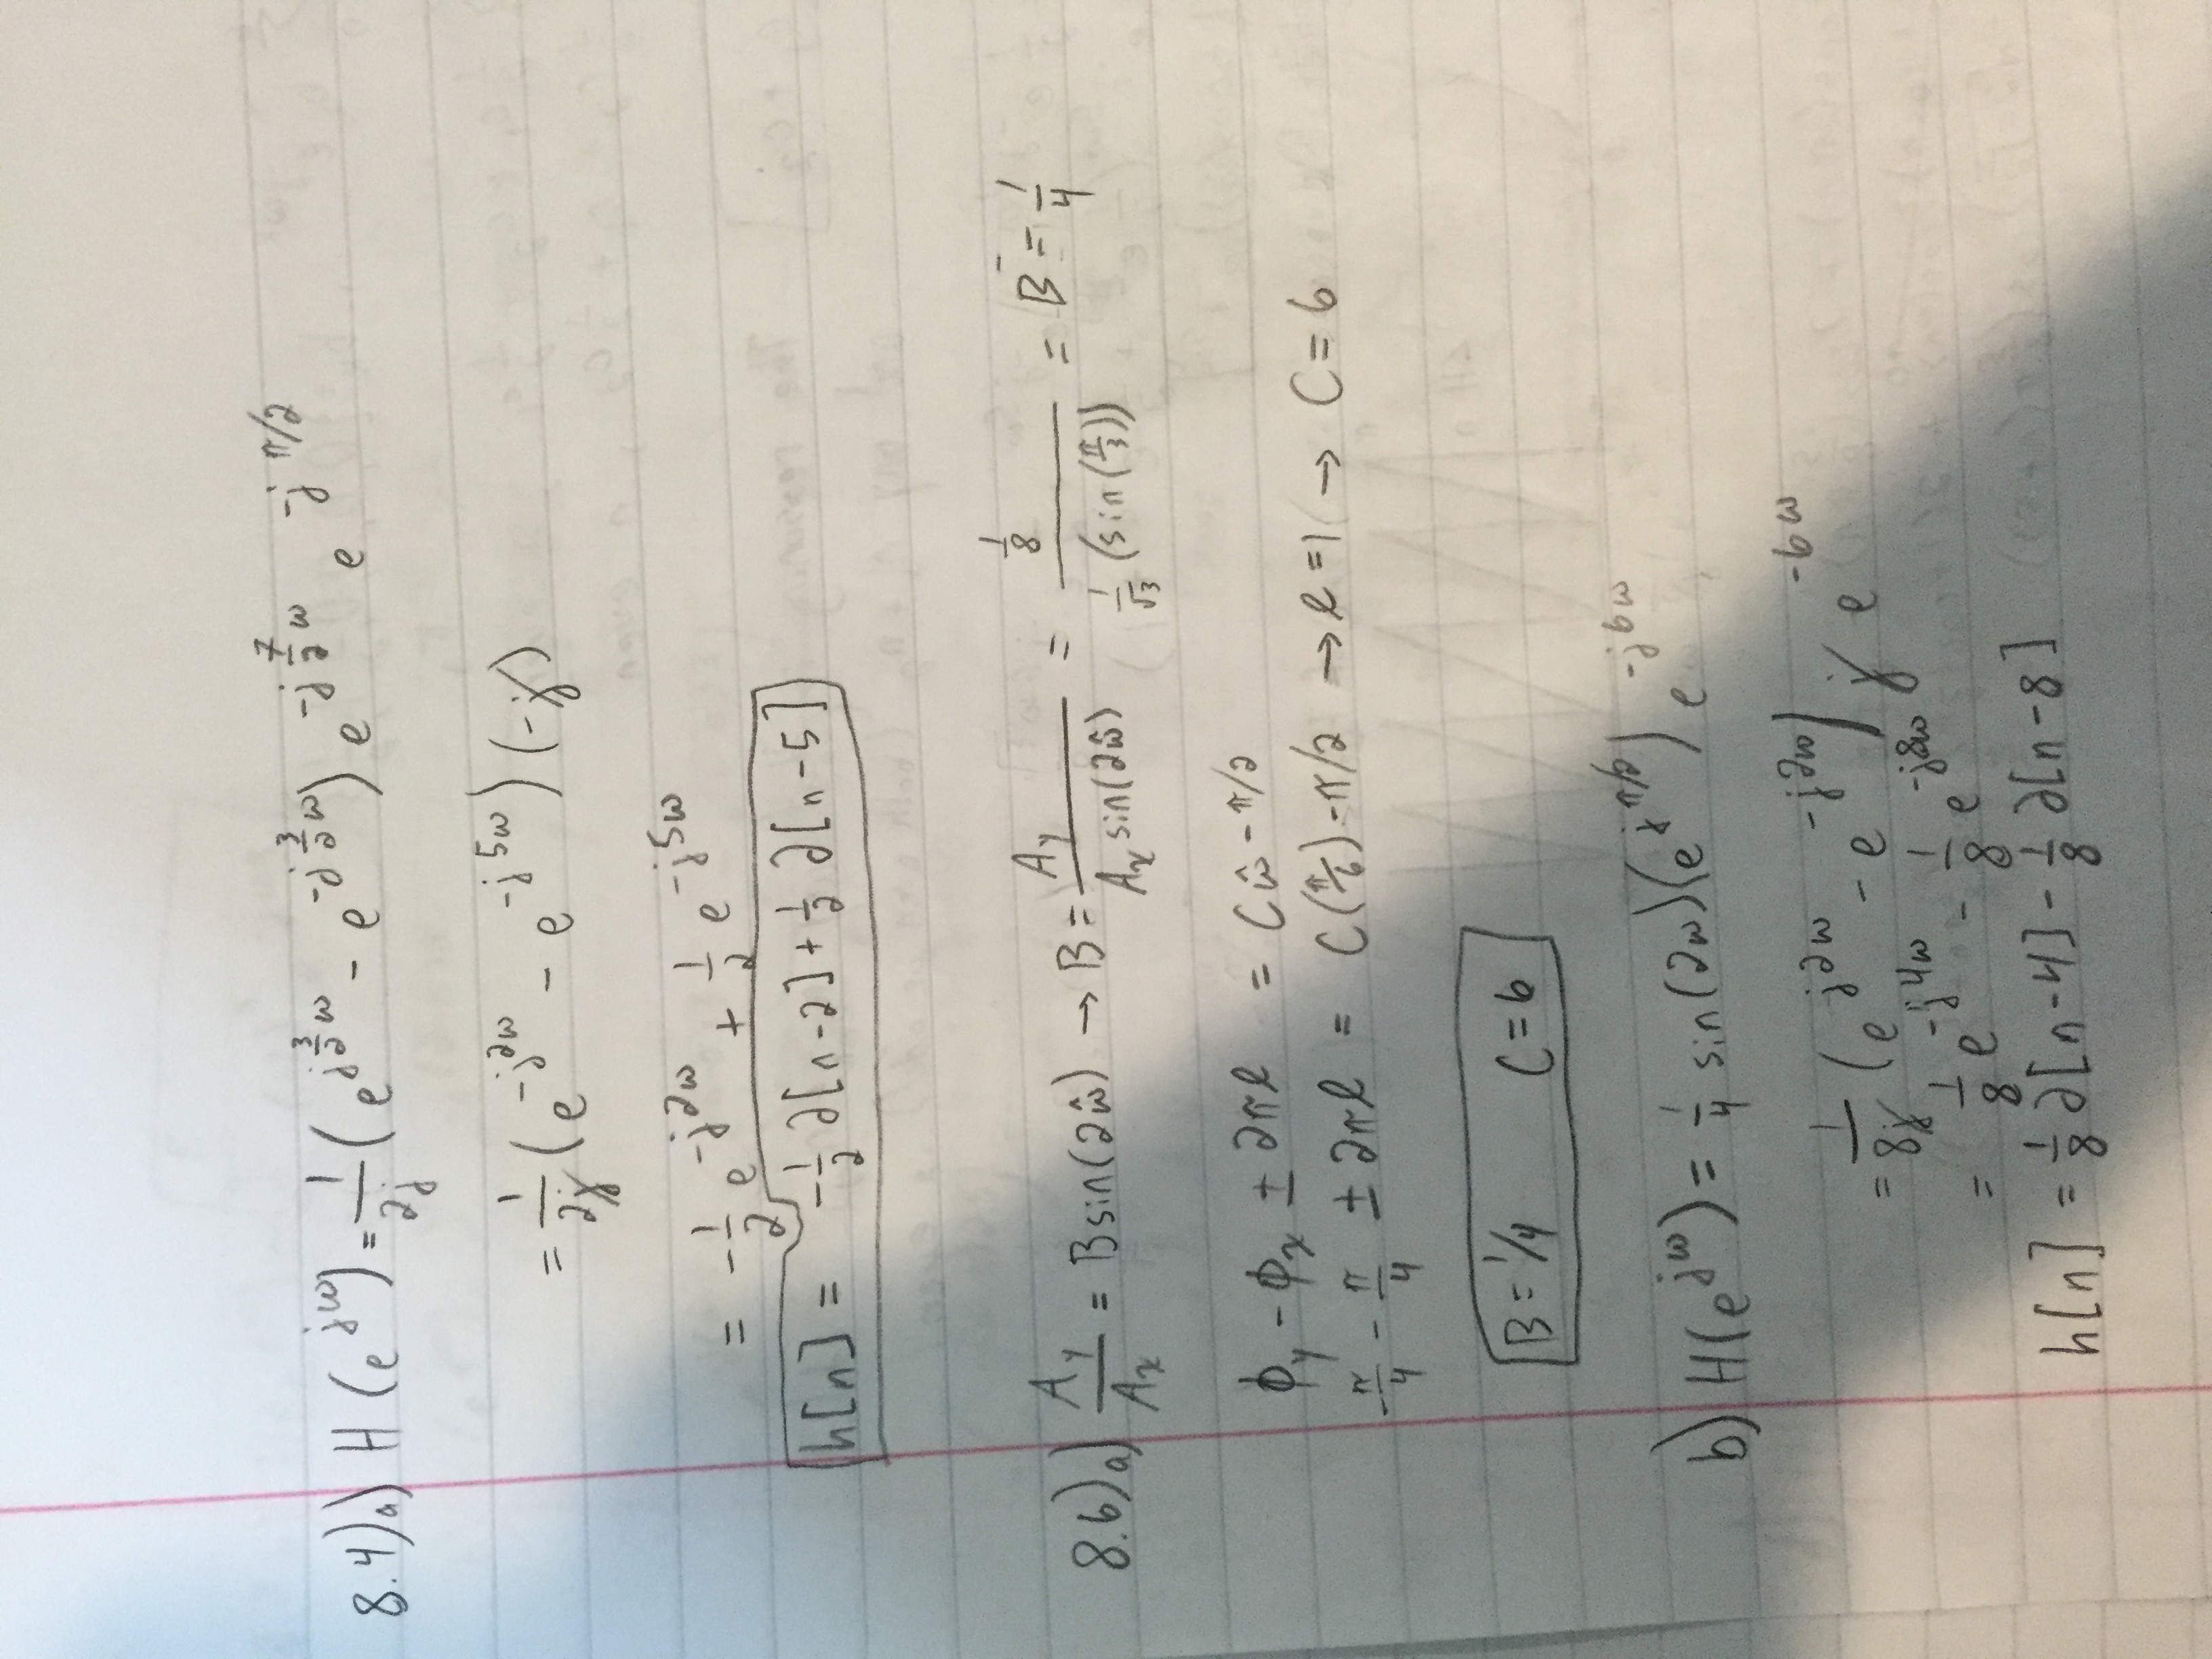 8.4)a) H(e^{jω}) = \frac{1}{2j}(e^{j\frac{3}{2}ω} - e^{-j\frac{3}{2}ω}) e^{-j\frac{7}{2}ω} e^{-jπ/2}
= \frac{1}{2j}(e^{-j2ω} - e^{-j5ω})(-j)
= -\frac{1}{2}e^{-j2ω} + \frac{1}{2}e^{-j5ω}
h[n] = -\frac{1}{2}∂[n-2] + \frac{1}{2}∂[n-5]
8.6)a) \frac{A_y}{A_x} = Bsin(2ω̂) → B = \frac{A_y}{A_x sin(2ω̂)} = \frac{\frac{1}{8}}{\frac{1}{√3}(sin(\frac{π}{3}))} = B = \frac{1}{4}
ϕ_y - ϕ_x ± 2πℓ = Cω̂ - π/2
-\frac{π}{4} - \frac{π}{4} ± 2πℓ = C(\frac{π}{6}) - π/2 → ℓ=1 → C = 6
B = 1/4 C = 6
b) H(e^{jω}) = \frac{1}{4} sin(2ω)(e^{jπ/2}) e^{-j6ω}
= \frac{1}{8j}(e^{j2ω} - e^{-j2ω}) j e^{-6ω}
= \frac{1}{8}e^{-j4ω} - \frac{1}{8}e^{-j8ω}
h[n] = \frac{1}{8}∂[n-4] - \frac{1}{8}∂[n-8]